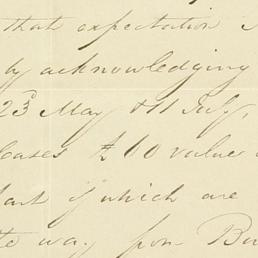 that expectation
by acknowledging
23d May & 11 July,
Cases £60 value
part of which are
way from